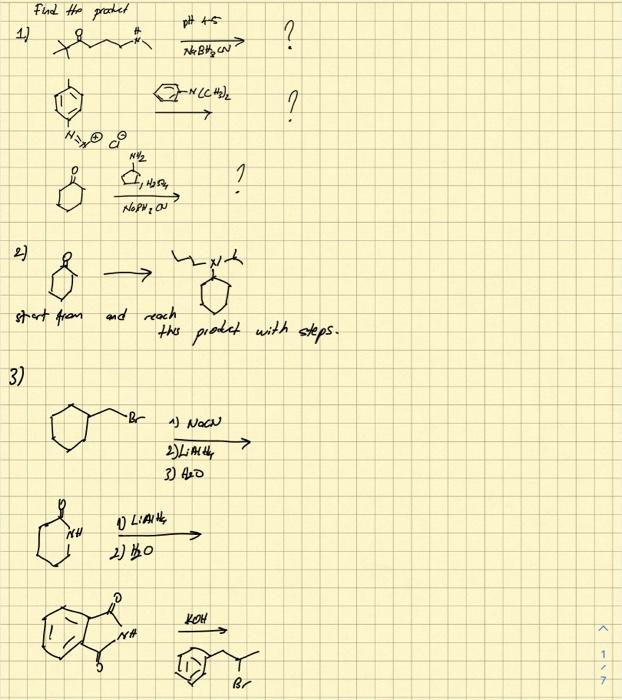 Find the product
1)
O
H
N
pH 4-5
NaBH3CN
?
N(CH3)2
?
N
N
⊕
Cl⊖
O
NH2
, H2SO4
NaBH3CN
?
2)
O
N
start from and reach
this product with steps.
3)
Br
1) NaCN
2) LiAlH4
3) H2O
O
NH
1) LiAlH4
2) H2O
O
NH
O
KOH
Br
1
/
7